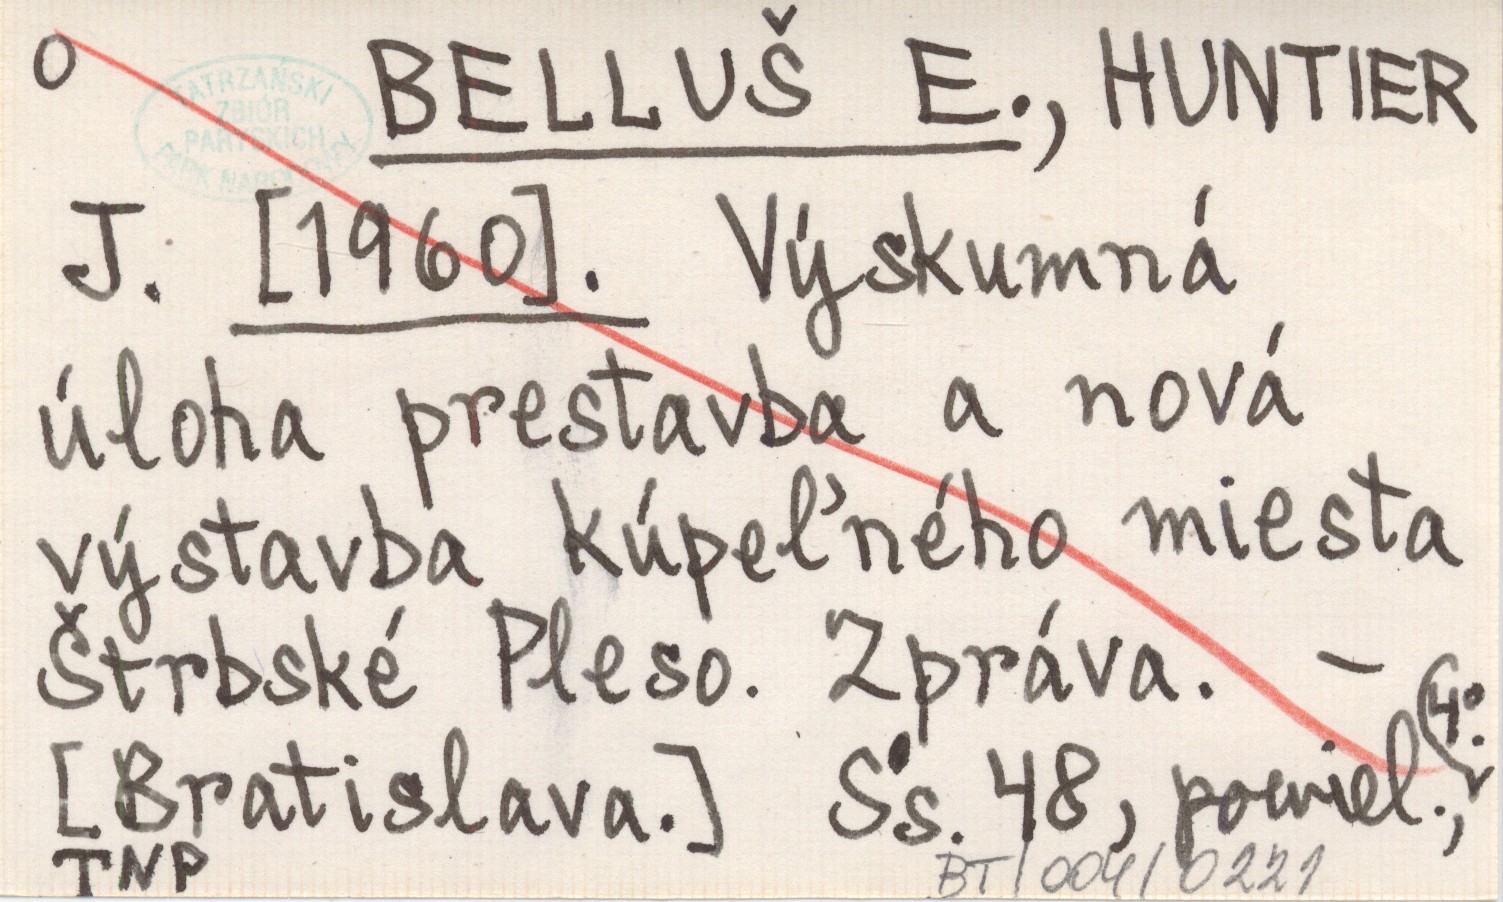 O BELLUŠ E., HUNTIER
TATRZAŃSKI
ZBIÓR
PARK NARODOWY
J. [1960]. Výskumná
úloha prestavba a nová
výstavba kúpeľného miesta
Štrbské Pleso. Zpráva. –
4°.
[Bratislava.] Ss. 48, powiel.,
TNP
BT/004/0221